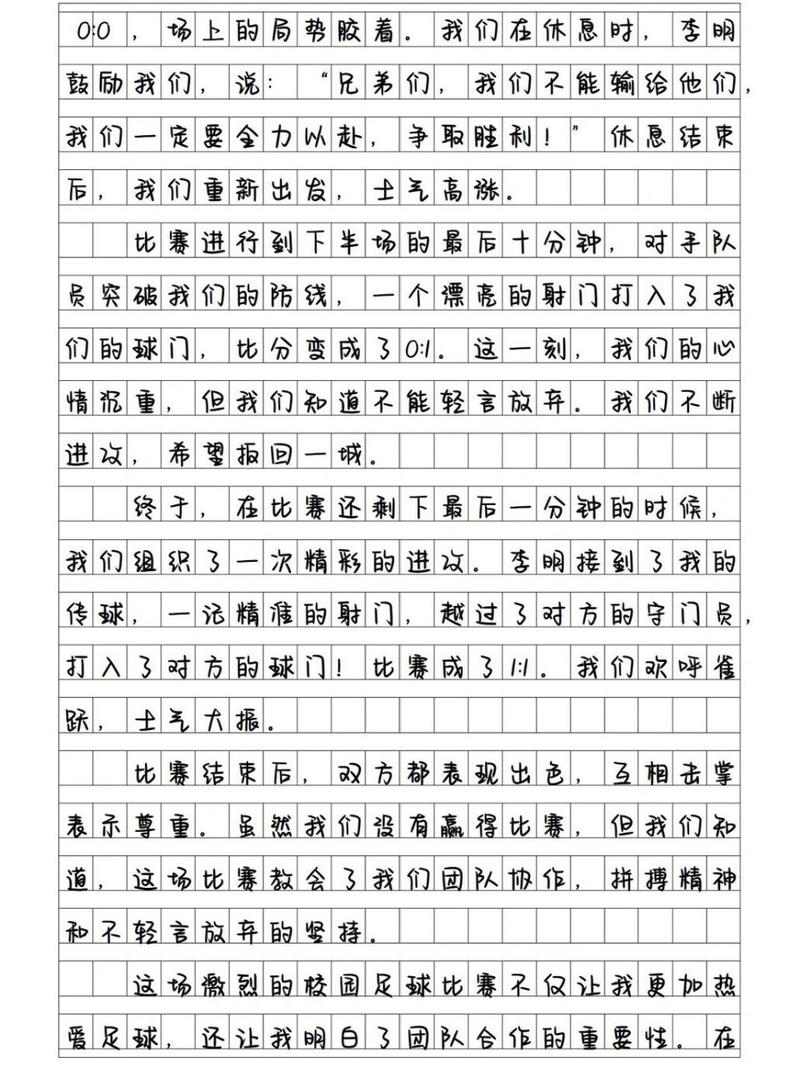 0:0，场上的局势胶着。我们在休息时，李明
鼓励我们，说：“兄弟们，我们不能输给他们，
我们一定要全力以赴，争取胜利！”休息结束
后，我们重新出发，士气高涨。
比赛进行到下半场的最后十分钟，对手队
员突破我们的防线，一个漂亮的射门打入了我
们的球门，比分变成了0:1。这一刻，我们的心
情沉重，但我们知道不能轻言放弃。我们不断
进攻，希望扳回一城。
终于，在比赛还剩下最后一分钟的时候，
我们组织了一次精彩的进攻。李明接到了我的
传球，一记精准的射门，越过了对方的守门员，
打入了对方的球门！比赛成了1:1。我们欢呼雀
跃，士气大振。
比赛结束后，双方都表现出色，互相击掌
表示尊重。虽然我们没有赢得比赛，但我们知
道，这场比赛教会了我们团队协作，拼搏精神
和不轻言放弃的坚持。
这场激烈的校园足球比赛不仅让我更加热
爱足球，还让我明白了团队合作的重要性。在